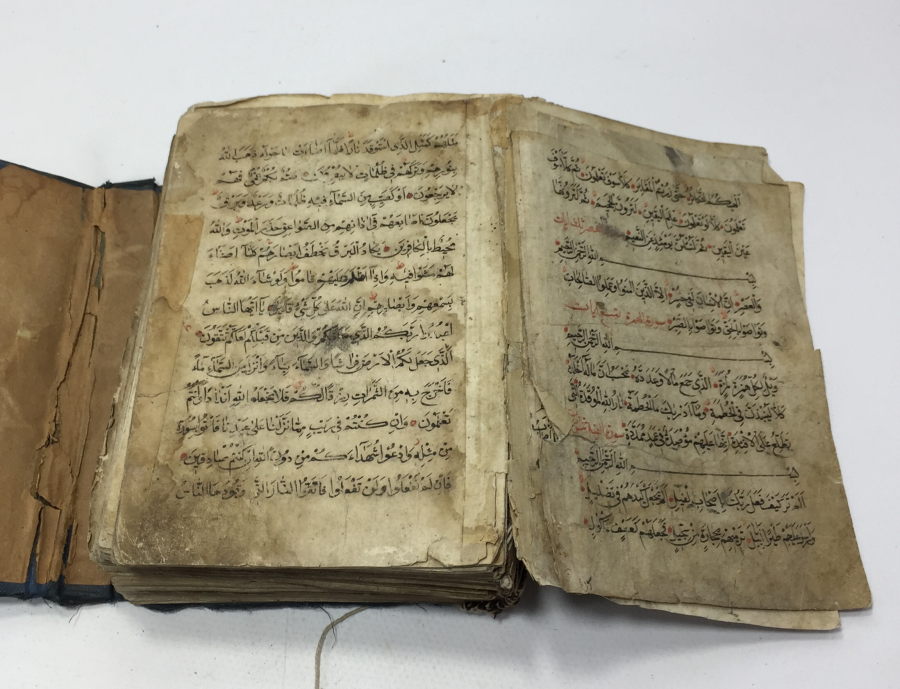 ألهكم التكاثر حتى زرتم المقابر كلا سوف تعلمون ثم كلا سوف
تعلمون كلا لو تعلمون علم اليقين لترون الجحيم ثم لترونها
عين اليقين ثم لتسئلن يومئذ عن النعيم العصر ثلث ايات
بسم الله الرحمن الرحيم
والعصر ان الانسان لفي خسر الا الذين امنوا وعملوا الصالحات
وتواصوا بالحق وتواصوا بالصبر سورة الهمزة تسع ايات
بسم الله الرحمن الرحيم
ويل لكل همزة لمزة الذي جمع مالا وعدده يحسب ان ماله اخلده
كلا لينبذن في الحطمة وما ادراك ما الحطمة نار الله الموقدة التي
تطلع على الافئدة انها عليهم موصدة في عمد ممددة سورة الفيل
بسم الله الرحمن الرحيم
الم تر كيف فعل ربك باصحاب الفيل الم يجعل كيدهم في تضليل
وارسل عليهم طيرا ابابيل ترميهم بحجارة من سجيل فجعلهم كعصف مأكول
مثلهم كمثل الذي استوقد نارا فلما اضاءت ما حوله ذهب الله
بنورهم وتركهم في ظلمات لا يبصرون صم بكم عمي فهم
لا يرجعون او كصيب من السماء فيه ظلمات ورعد وبرق
يجعلون اصابعهم في اذانهم من الصواعق حذر الموت والله
محيط بالكافرين يكاد البرق يخطف ابصارهم كلما اضاء
لهم مشوا فيه واذا اظلم عليهم قاموا ولو شاء الله لذهب
بسمعهم وابصارهم ان الله على كل شئ قدير يا ايها الناس
اعبدوا ربكم الذي خلقكم والذين من قبلكم لعلكم تتقون
الذي جعل لكم الارض فراشا والسماء بناء وانزل من السماء ماء
فاخرج به من الثمرات رزقا لكم فلا تجعلوا لله اندادا وانتم
تعلمون وان كنتم في ريب مما نزلنا على عبدنا فاتوا بسورة
من مثله وادعوا شهداءكم من دون الله ان كنتم صادقين
فان لم تفعلوا ولن تفعلوا فاتقوا النار التي وقودها الناس